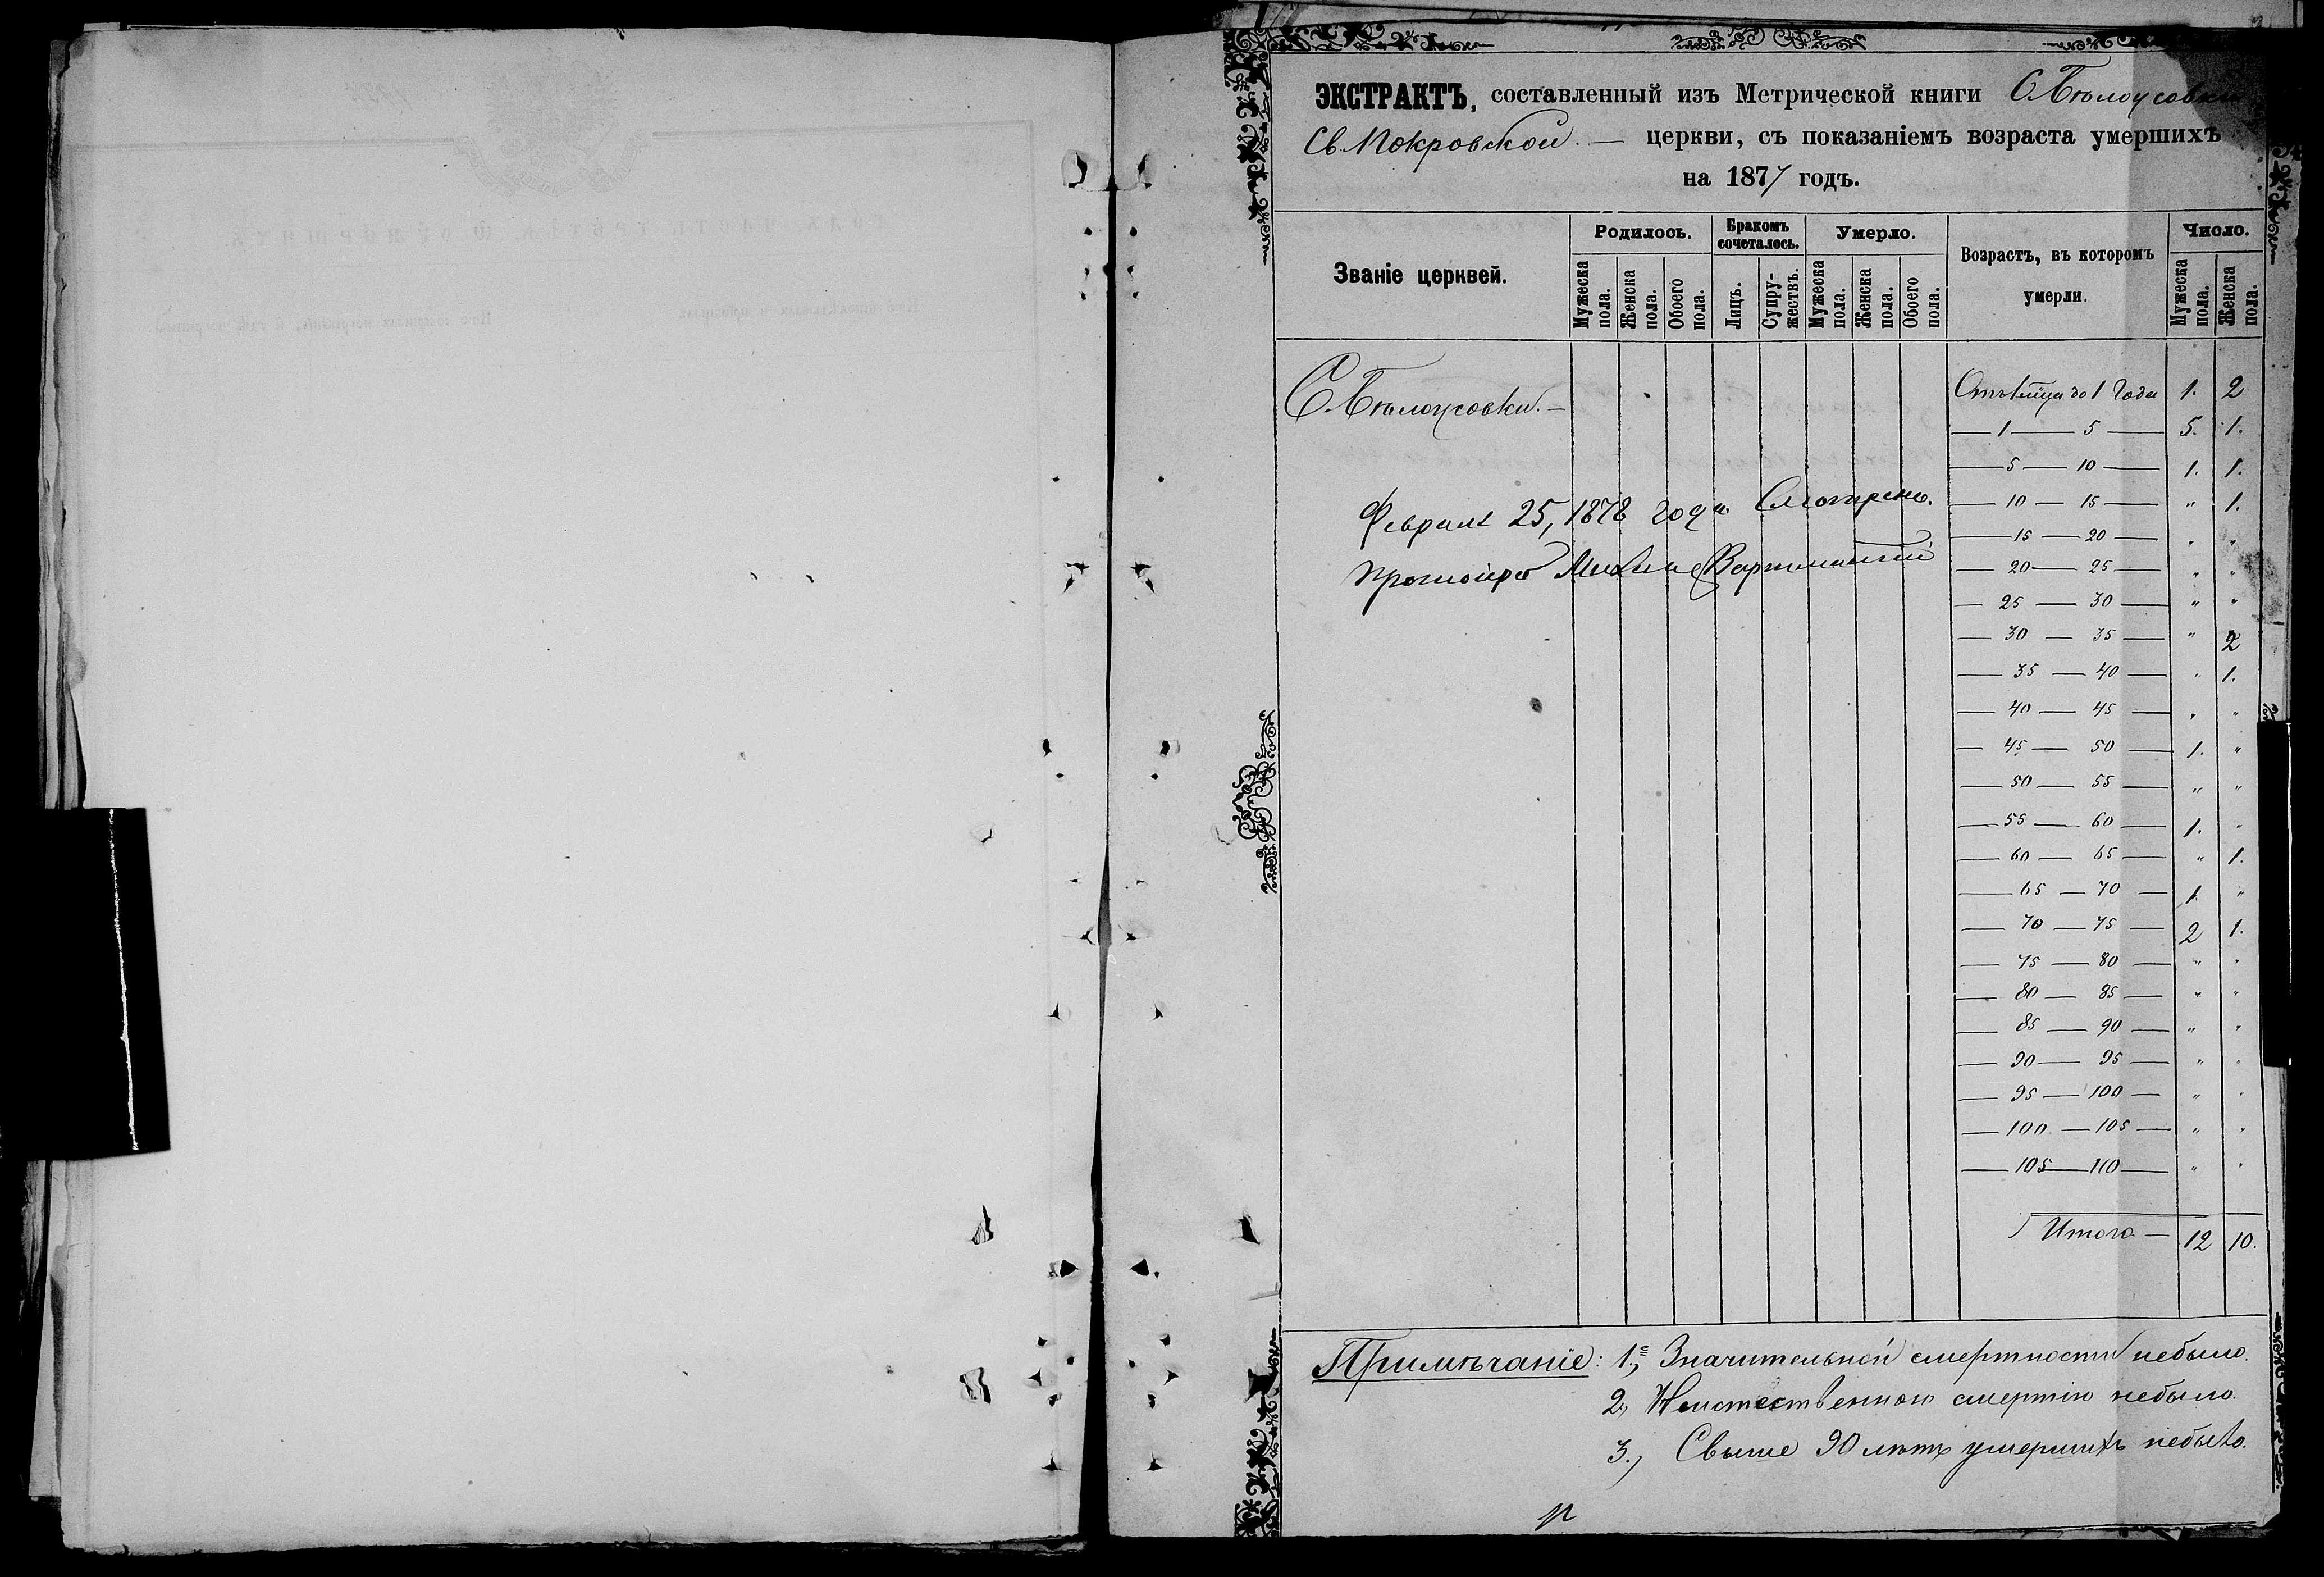 ЭКСТРАКТЪ, составленный изъ Метрической книги С. Бѣлоусовки
Св. Покровской — церкви, съ показаніемъ возраста умершихъ
на 1877 годъ.
Званіе церквей.
Родилось.
Бракомъ сочеталось.
Умерло.
Возрастъ, въ которомъ умерли.
Число.
Мужеска пола.
Женска пола.
Обоего пола.
Лицъ.
Супружествъ.
Мужеска пола.
Женска пола.
Обоего пола.
Мужеска пола.
Женска пола.
С. Бѣлоусовки. —
до 1 Года 1. 2
— 1 — 5 — 5. 1.
— 5 — 10 — 1. 1.
— 10 — 15 — " 1.
— 15 — 20 — " "
— 20 — 25 — " "
— 25 — 30 — " "
— 30 — 35 — " 2
— 35 — 40 — " 1.
— 40 — 45 — " "
— 45 — 50 — 1. "
— 50 — 55 — " "
— 55 — 60 — 1. "
— 60 — 65 — " 1.
— 65 — 70 — 1. "
— 70 — 75 — 2 1.
— 75 — 80 — " "
— 80 — 85 — " "
— 85 — 90 — " "
— 90 — 95 — " "
— 95 — 100 — " "
— 100 — 105 — " "
— 105 — 110 — " "
Итого — 12 10.
Февраля 25, 1878 года Смотрено.
Примѣчаніе: 1е, Значительной смертности небыло.
2, смертію небыло.
3., Свыше 90 лѣтъ умершихъ небыло.